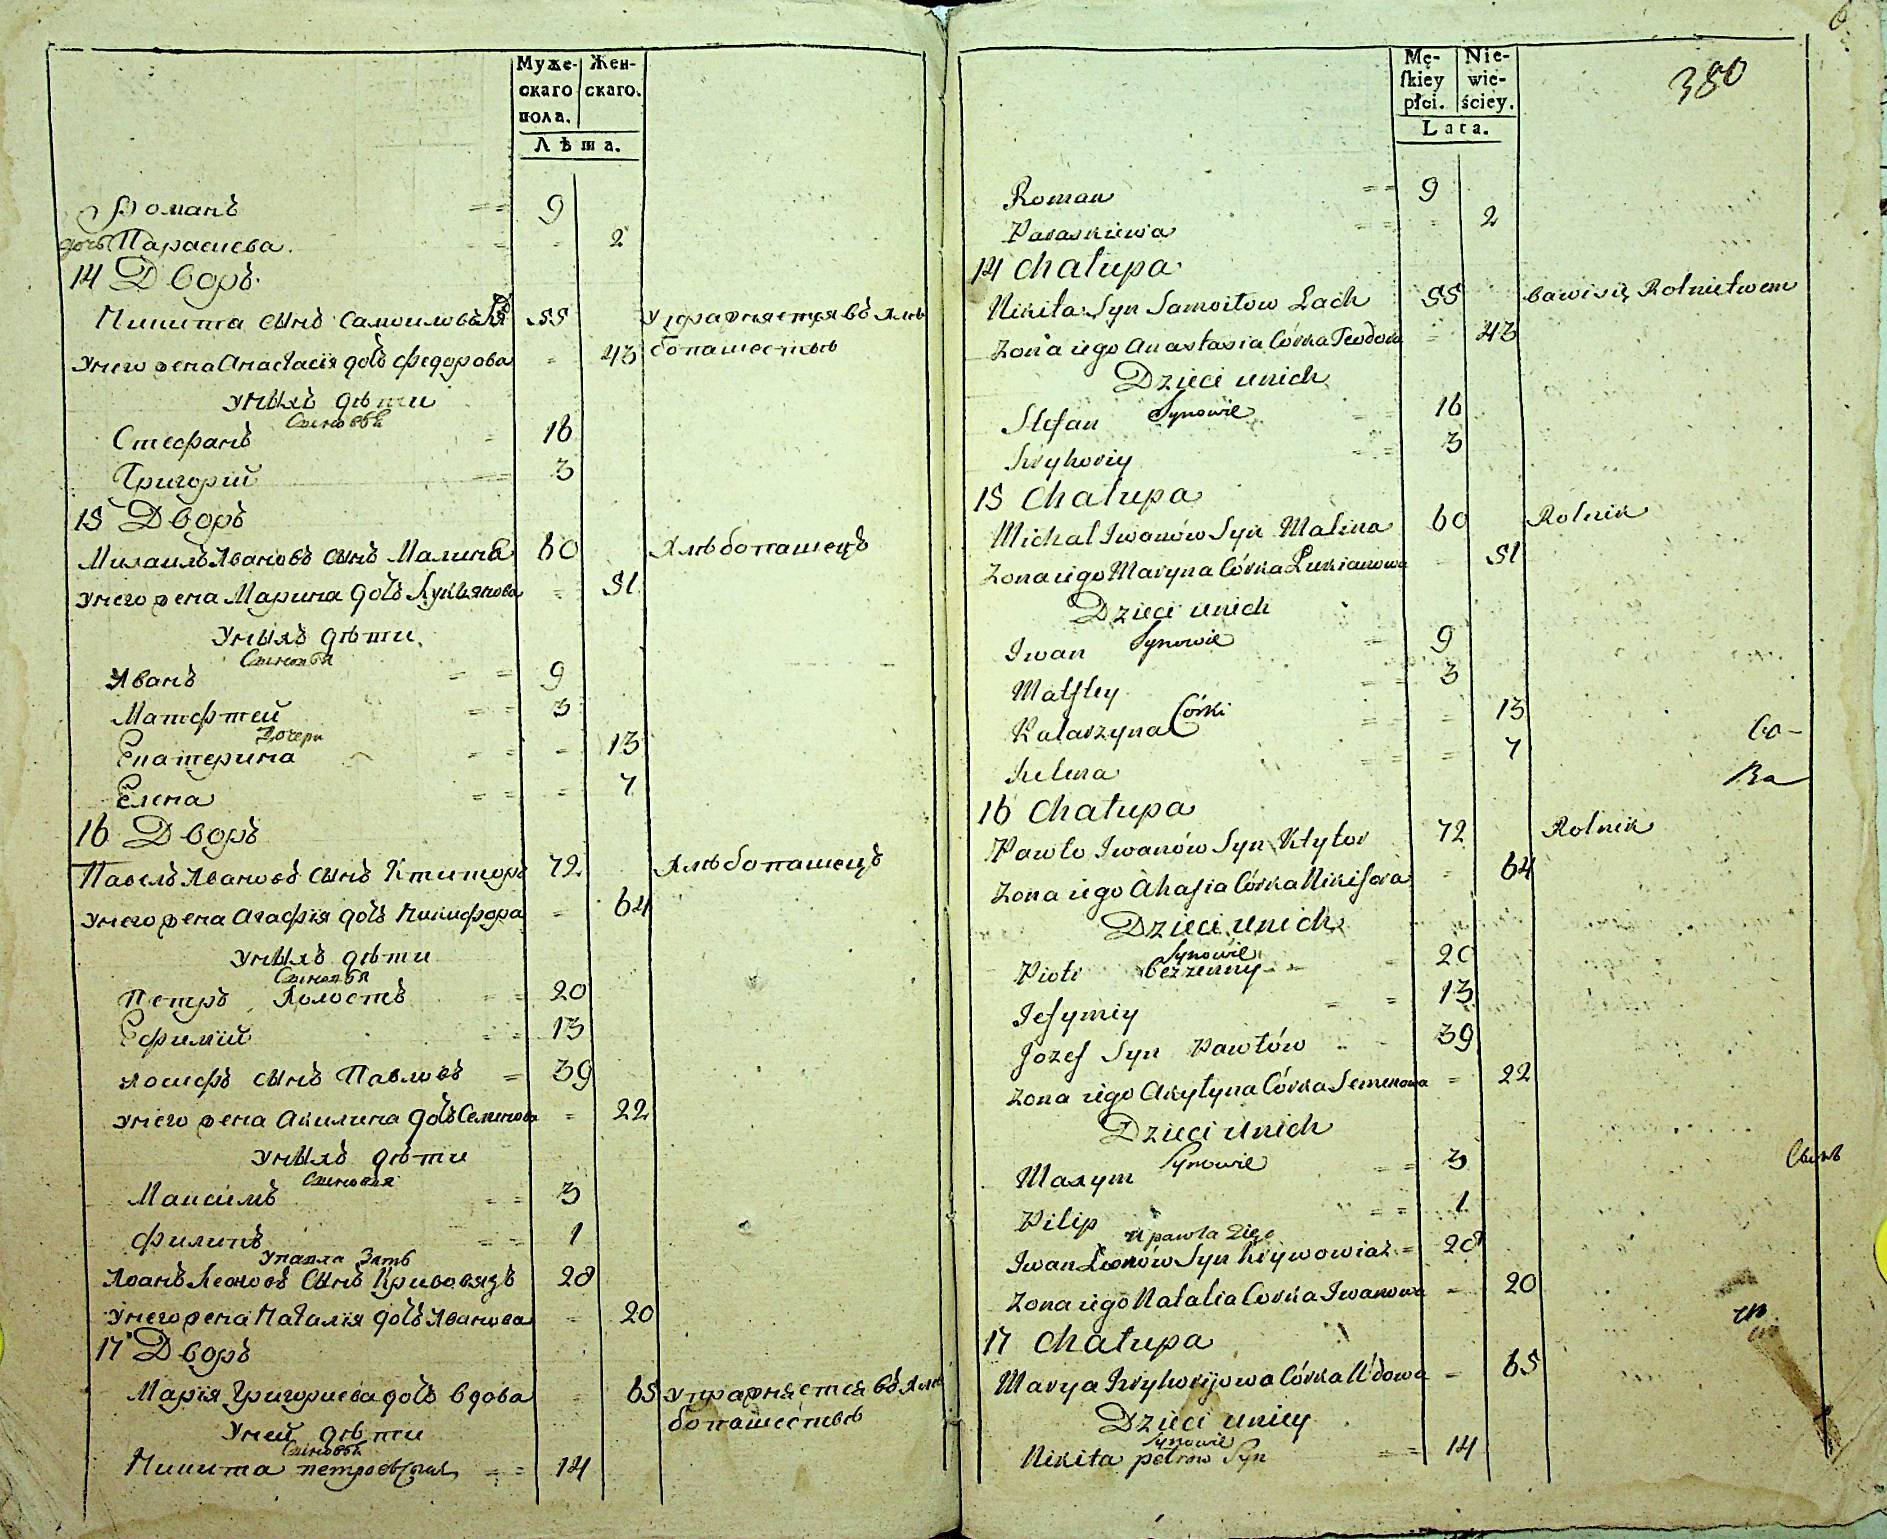 Муже-
скаго
пола.
Жен-
скаго.
Лѣта.
Романъ 9
дочь Параскева. 2
14 Дворъ.
Никита сынъ Самоиловъ 55 упражняется въ хлѣ
У него жена Анастасія дочь Федорова 43 бопашествѣ
У нихъ дѣти
Сыновья
Стефанъ 16
Григорій 3
15 Дворъ
Михаилъ Ивановъ сынъ Малина 60 Хлѣбопашецъ
У него жена Марина дочь Лукьянова 51
У нихъ дѣти.
Сыновья
Иванъ 9
Матфтей 3
Дочери
Екатерина 13
Елена 7
16 Дворъ
Павелъ Ивановъ сынъ Ктиторъ 72 Хлѣбопашецъ
У него жена Агафія дочь Никифора 64
У нихъ дѣти
Сыновья
Петръ Холостъ 20
Ефимій 13
Иосифъ сынъ Павловъ 39
У него жена Акилина дочь Семенова 22
У нихъ дѣти
Сыновья
Максимъ 3
Филипъ 1
У павла Зять
Иванъ Леоновъ Сынъ Кривовязъ 28
У него жена Наталія дочь Иванова 20
17 Дворъ
Марія Григориева дочь вдова 65 упражняется въ хлѣ
бопашествѣ
У ней дѣти
Сыновья
Никита петровъ сынъ 14
380
Mę-
skiey
płci.
Nie-
wie-
ściey.
Lata.
Roman 9
Paraskiewa 2
14 Chałupa
Nikita Syn Samoiłow Lach 55 bawi się Rolnictwem
Zona iego Anastasia Córka Teodora 43
Dzieci u nich
Synowie
Stefan 16
Hryhoriy 3
15 Chałupa
Michał Iwanów Syn Malina 60 Rolnik
Zona iego Maryna Córka Łukianowa 51
Dzieci u nich
Synowie
Iwan 9
Matftey 3
Córki
Katarzyna 13
Helena 7
16 Chałupa
Pawło Iwanów Syn Ktytor 72 Rolnik
Zona iego Ahafia Córka Nikifora 64
Dzieci u nich
Synowie
Piotr bezzenny 20
Jefymiy 13
Jozef Syn Pawłów 39
Zona iego Akyłyna Córka Semenowa 22
Dzieci u nich
Synowie
Maxym 3
Pilip 1
U pawła Zięć
Iwan Leonów Syn Krywowiaz 28
Zona iego Natalia Corka Iwanowa 20
17 Chałupa
Marya Hryhorijowa Córka Wdowa 65
Dzieci u niey
Synowie
Nikita petrow Syn 14